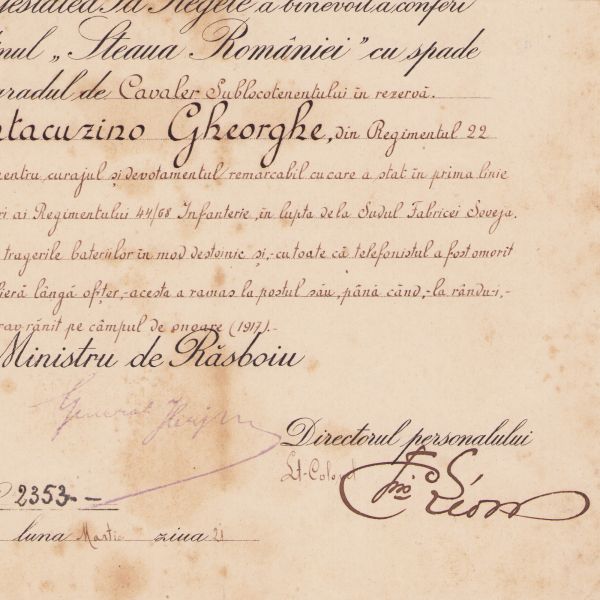 Majestatea Sa Regele a binevoit a conferi
"Steaua României" cu spade
gradul de Cavaler Sublocotenentului în rezervă.
Gheorghe, din Regimentul 22
pentru curajul și devotamentul remarcabil cu care a stat în prima linie
ai Regimentului 44/68 Infanterie, în lupta de la Sudul Fabricei Soveja.
tragerile bateriilor în mod destoinic și,-cu toate că telefonistul a fost omorît
lângă ofițer,-acesta a ramas la postul său, până când,-la rându-i,-
rănit pe câmpul de onoare (1917).-
Ministru de Răsboiu
General
Directorul personalului
Lt-Colonel
2353--
luna Martie ziua 21